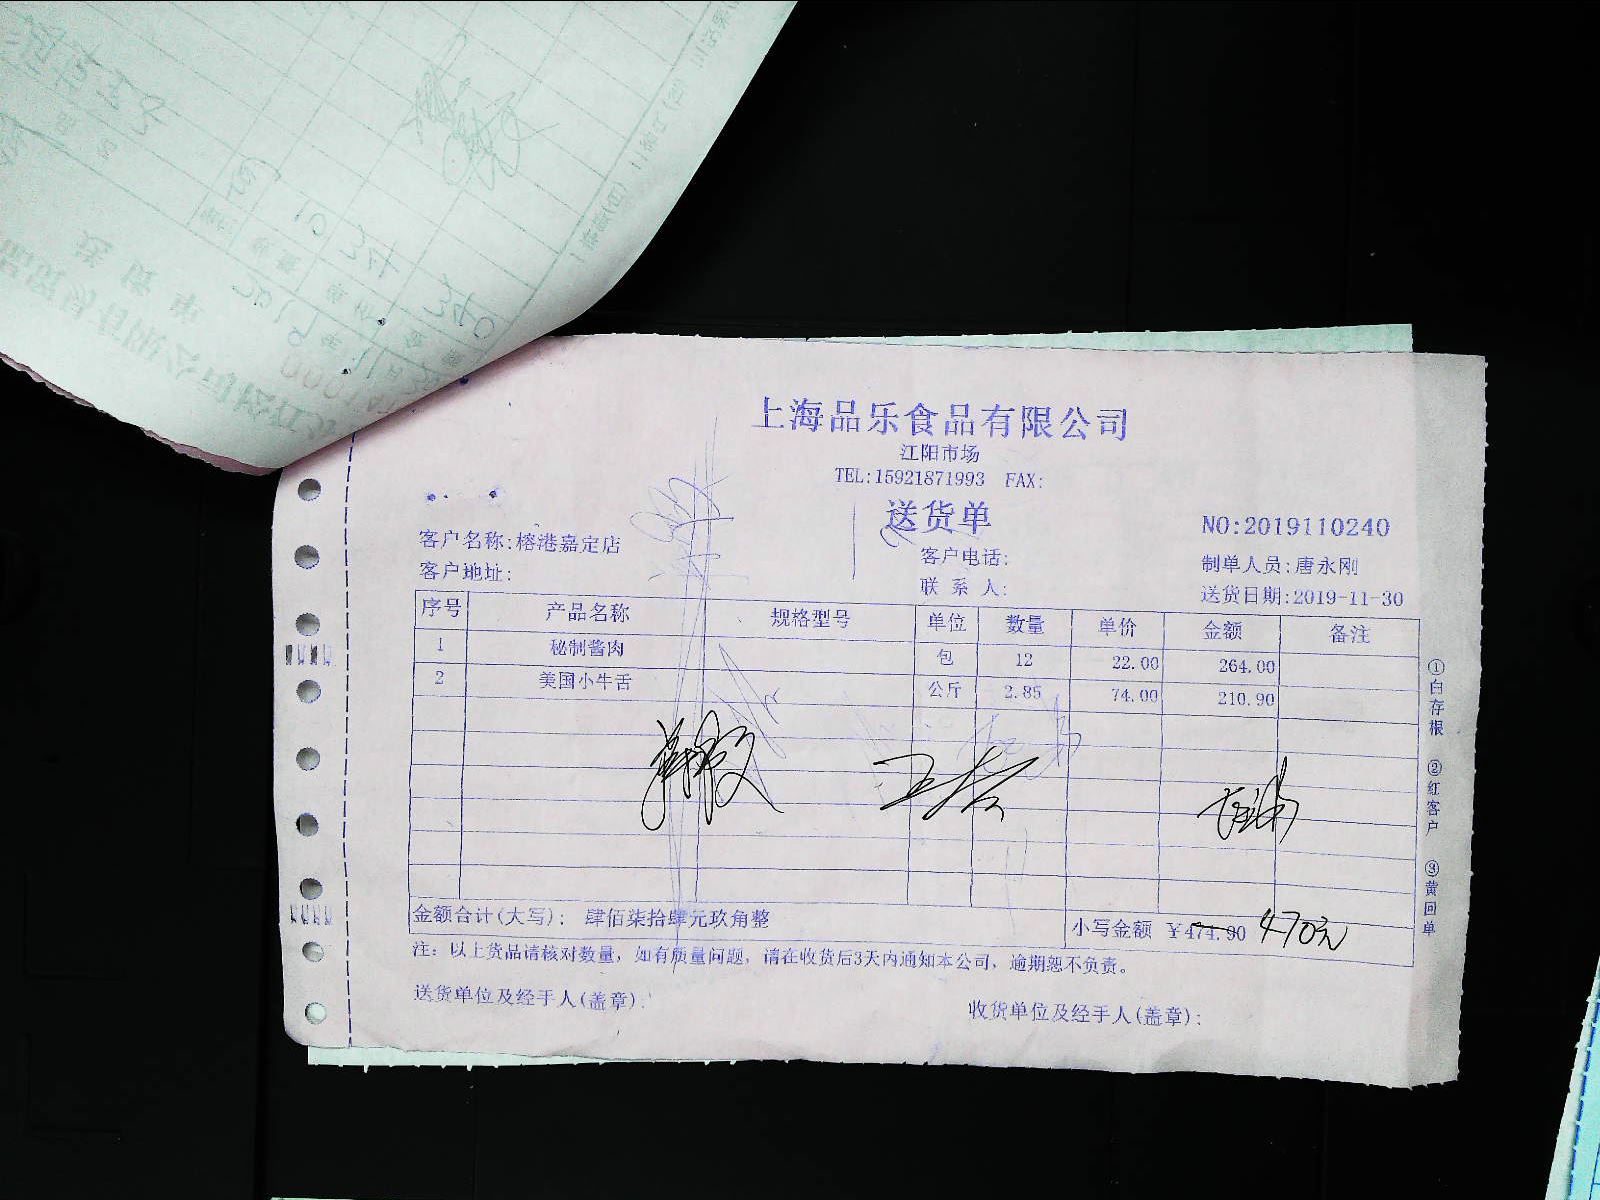 上海品乐食品有限公司
江阳市场
TEL:15921871993 FAX:
送货单
NO:2019110240
客户名称:榕港嘉定店
客户电话:
制单人员:唐永刚
客户地址:
联 系 人:
送货日期:2019-11-30
序号 产品名称 规格型号 单位 数量 单价 金额 备注
1 秘制酱肉 包 12 22.00 264.00
2 美国小牛舌 公斤 2.85 74.00 210.90
金额合计(大写): 肆佰柒拾肆元玖角整 小写金额 ¥474.90 470元
注: 以上货品请核对数量, 如有质量问题, 请在收货后3天内通知本公司, 逾期恕不负责。
送货单位及经手人(盖章):
收货单位及经手人(盖章):
①白存根 ②红客户 ③黄回单